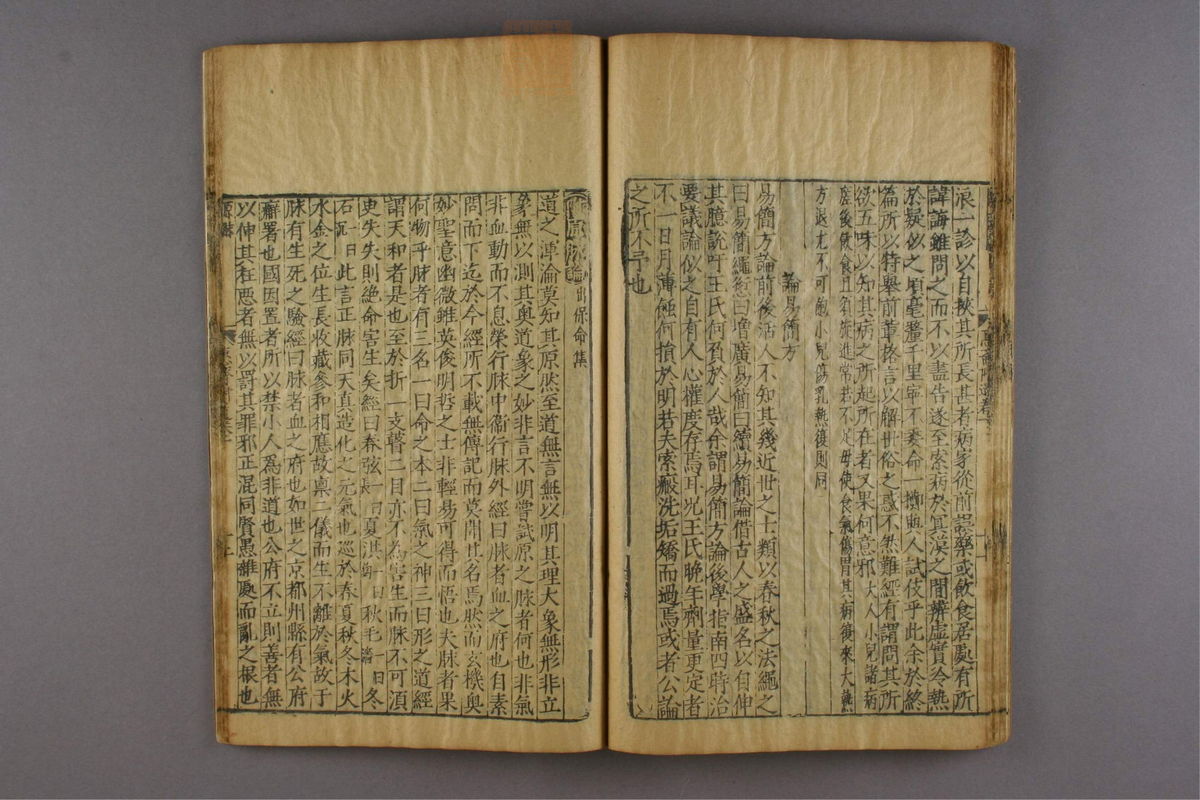 浪一診以自挾其所長甚者病家從前誤藥或飲食居處有所
諱誨雖問之而不以盡告遂至索病於冥漠之間辨虛實冷熱
於疑似之頃毫釐千里寧不悞命一擲與人試伎乎此余於終
篇所以特舉前輩格言以解世俗之惑不然難經有謂問其所
欲五味以知其病之所起所在者又果何意邪大人小兒諸病
瘥後飲食且須旋進常若不足毋使食氣傷胃其病復來大熱
方退尤不可飽小兒傷乳熱復則同
論易簡方
易簡方論前後活人不知其幾近世之士類以春秋之法繩之
曰易簡繩愆曰增廣易簡曰續易簡論借古人之盛名以自伸
其臆說吁王氏何負於人哉余謂易簡方論後學指南四時治
要議論似之自有人心權度存焉耳況王氏晚年劑量更定者
不一日月薄蝕何損於明若夫索瘢洗垢矯而過焉或者公論
之所不予也
原脉論出保命集
道之渾淪莫知其原然至道無言無以明其理大象無形非立
象無以測其奧道象之妙非言不明嘗試原之脉者何也非氣
非血動而不息榮行脉中衞行脉外經曰脉者血之府也自素
問而下迄於今經所不載無傳記而莫聞其名焉然而玄機奧
妙聖意幽微雖英俊明哲之士非輕易可得而悟也夫脉者果
何物乎脉者有三名一曰命之本二曰氣之神三曰形之道經
謂天和者是也至於折一支瞽二目亦不為害生而脉不可須
臾失失則絶命害生矣經曰春弦一曰長夏洪一曰鉤秋毛一曰濇冬
石一曰沉此言正脉同天真造化之元氣也巡於春夏秋冬木火
水金之位生長收藏參和相應故禀二儀而生不離於氣故于
脉有生死之驗經曰脉者血之府也如世之京都州縣有公府
廨署也國因置者所以禁小人為非道也公府不立則善者無
以伸其枉惡者無以罰其罪邪正混同賢愚雜處而亂之根也